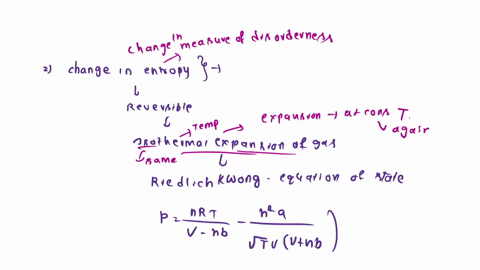 change in measure of disorderness
2) change in entropy } →
↓
Reversible
↓
Temp
expansion → at cons T.
↓ again
isothermal expansion of gas
↳ same ↓
Riedlich Kwong - equation of state
P = nRT / V - nb - n²a / √T V (V+nb)